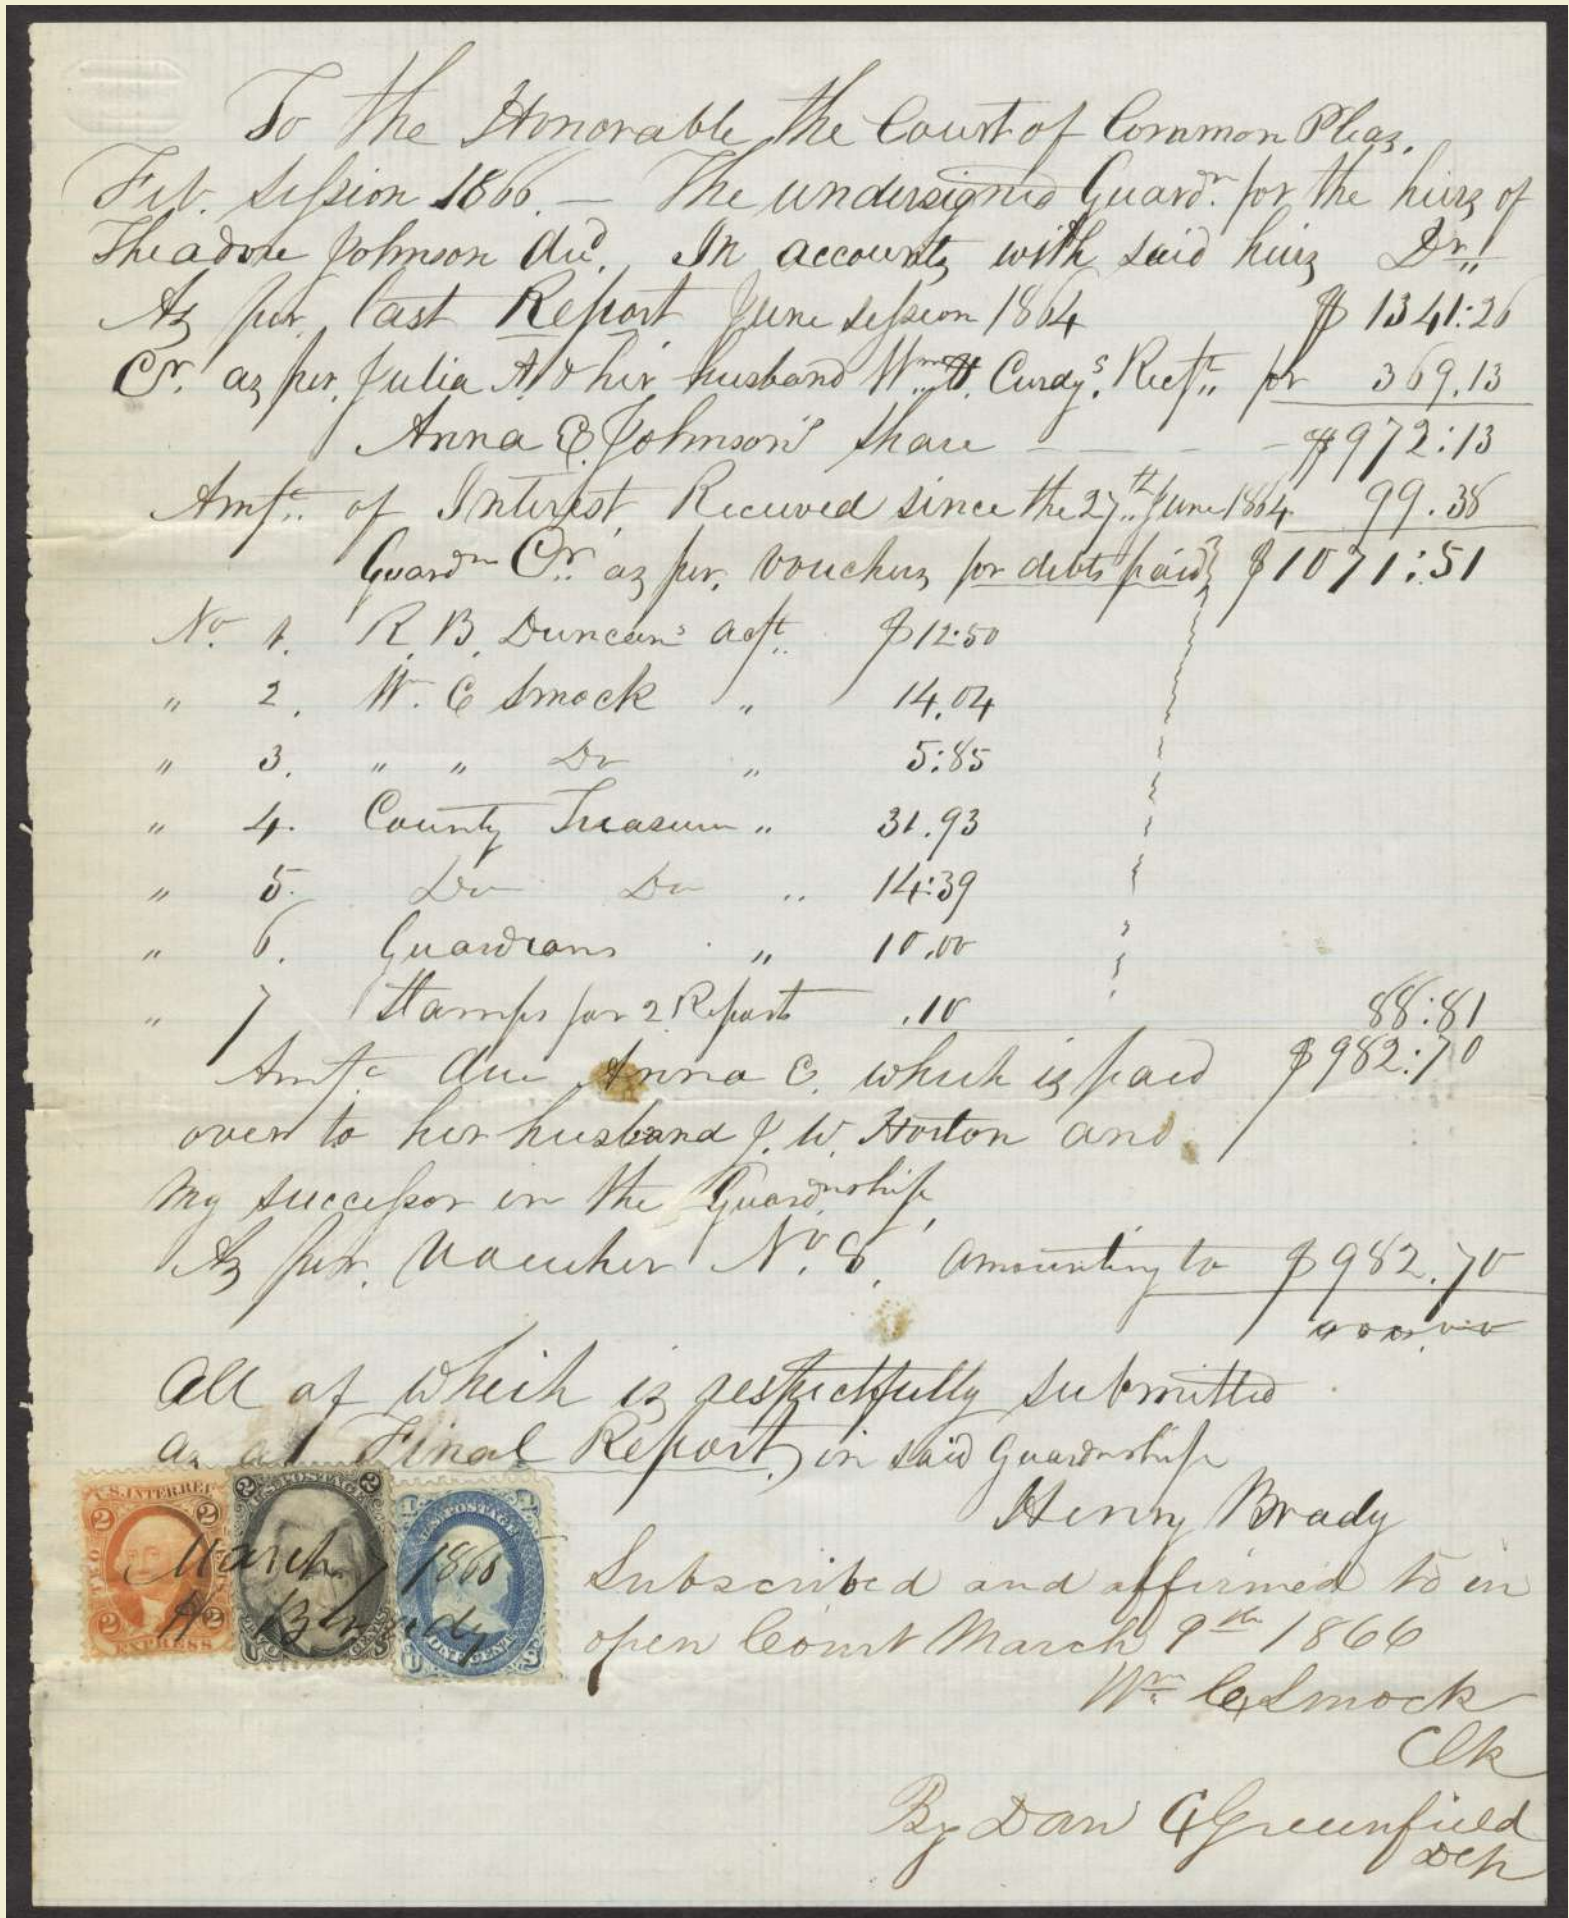 To the Honorable, the Court of Common Pleas.
Feb. Session 1866. — The undersigned Guardn. for the heirs of
Theadore Johnson decd. In accounts with said heirs Dr.
As per. last Report June session 1864 $ 1341:26
Cr. as per. Julia A. & her husband Wm. Curdy's. Rect. for 369.13
Anna E. Johnson's share — — — — $972:13
Amt. of Interest Received since the 27th June 1864 99.38
Guardn Cr. as per. vouchers for debts paid $1071:51
No. 1. R. B. Duncan's act. $12:50
" 2. W. C Smock " 14.04
" 3. " " Do " 5:85
" 4. County Treasurer " 31.93
" 5. Do Do " 14:39
" 6. Guardians " 10.00
" 7 Stamps for 2 Reports .10 88:81
Amt. due Anna E. which is paid $982:70
over to her husband J. W. Horton and
my successor in the Guardnship,
As per. Voucher No. 8. amounting to $982.70
000.00
All of which is respectfully submitted
as a Final Report, in said Guardnship
Henry Brady
Subscribed and affirmed to in
open Court March 9th 1866
Wm. C Smock
Clk
By Dan G Greenfield
Dep
U.S. INTER REV
2 2
TWO
2 2
EXPRESS
U.S. POSTAGE
2 2
U.S. POSTAGE
1 1
ONE CENT
March 1866
H Brady